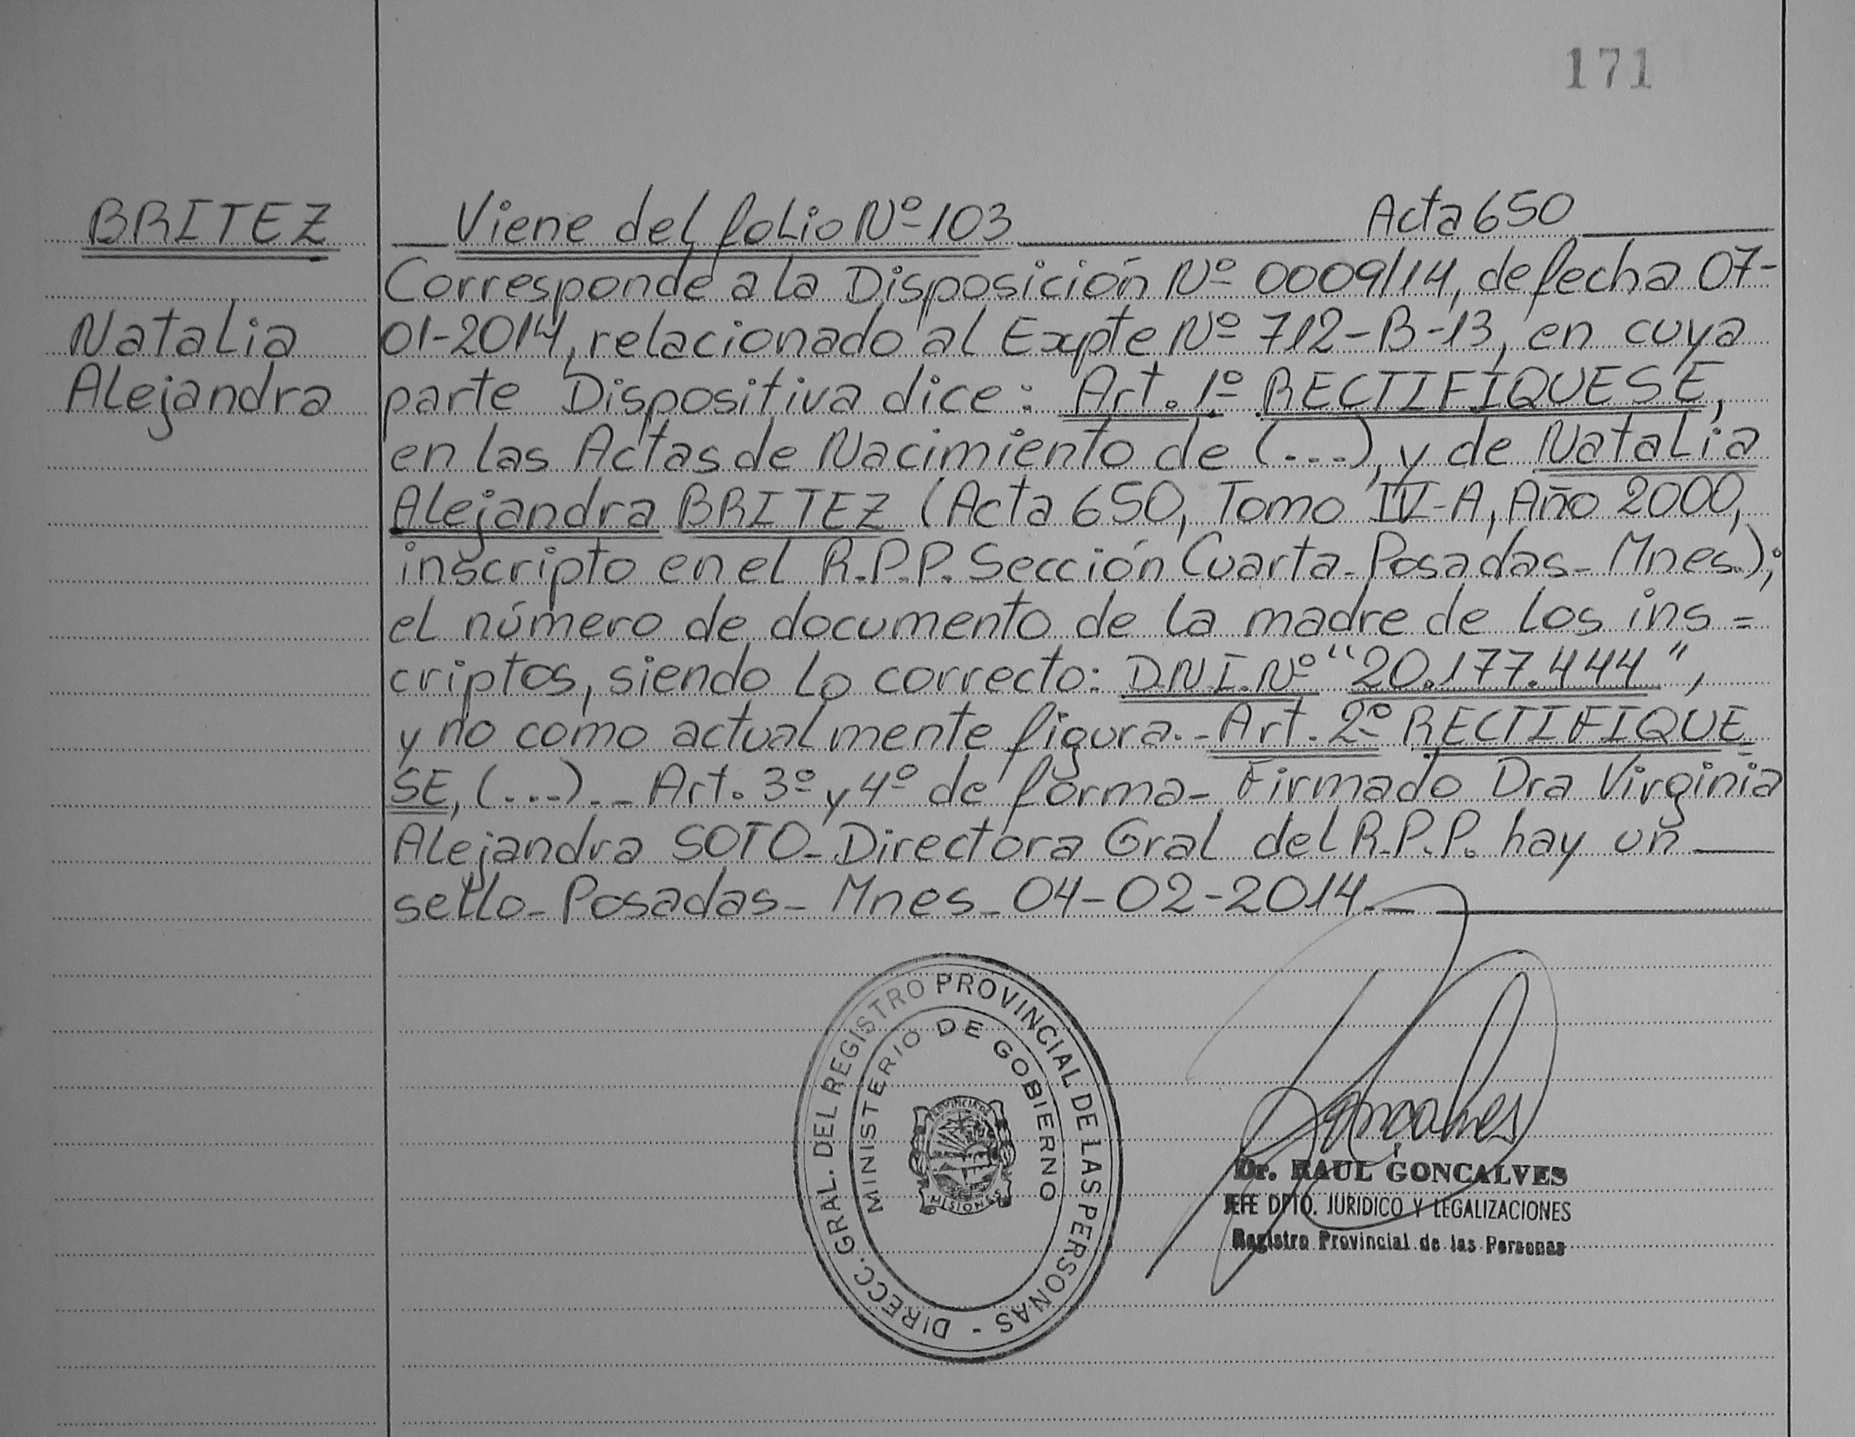 171
BRITEZ
Natalia
Alejandra
Viene del folio Nº 103 Acta 650
Corresponde a la Disposición Nº 0009/14, de fecha 07-
01-2014, relacionado al Expte Nº 712-B-13, en cuya
parte Dispositiva dice: Art. 1º RECTIFIQUESE,
en las Actas de Nacimiento de (...), y de Natalia
Alejandra BRITEZ (Acta 650, Tomo IV-A, Año 2000,
inscripto en el R.P.P. Sección Cuarta-Posadas-Mnes.);
el número de documento de la madre de los ins=
criptos, siendo lo correcto: D.N.I. Nº "20.177.444",
y no como actualmente figura.- Art. 2º RECTIFIQUE=
SE, (...).- Art. 3º y 4º de forma- Firmado Dra Virginia
Alejandra SOTO-Directora Gral del R.P.P. hay un
sello-Posadas-Mnes-04-02-2014.-
DIRECC. GRAL. DEL REGISTRO PROVINCIAL DE LAS PERSONAS -
MINISTERIO DE GOBIERNO
PROVINCIA DE
MISIONES
Goncalves
Dr. RAUL GONCALVES
JEFE DPTO. JURIDICO Y LEGALIZACIONES
Registro Provincial de las Personas